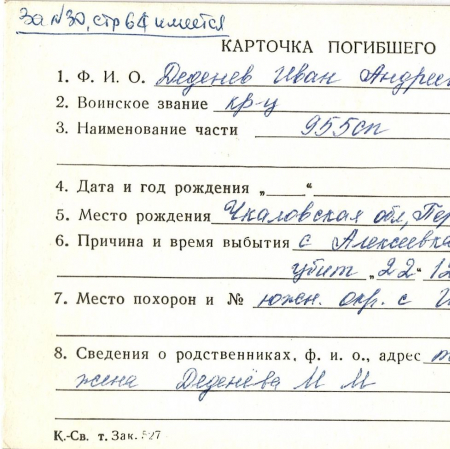 За №30, стр 64 имеется
КАРТОЧКА ПОГИБШЕГО
1. Ф. И. О. Деденев Иван Андрее
2. Воинское звание кр-ц
3. Наименование части 955сп
4. Дата и год рождения „ “
5. Место рождения Чкаловская обл, Пер
6. Причина и время выбытия с Алексеевка
убит „22“ 12
7. Место похорон и № южн. окр. с
8. Сведения о родственниках, ф. и. о., адрес
жена Деденёва М М
К.-Св. т. Зак. 527